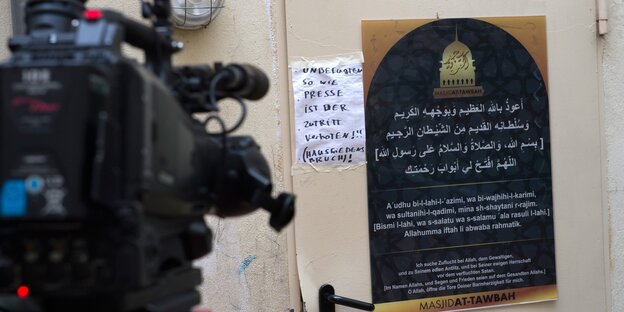 UNBEFUGTEN
SO WIE
PRESSE
IST DER
ZUTRITT
VERBOTEN!!
(HAUSFRIEDENS
BRUCH)!
MASJID AT-TAWBAH
أعوذ بالله العظيم وبوجهه الكريم
وسلطانه القديم من الشيطان الرجيم
[بسم الله، والصلاة والسلام على رسول الله]
اللهم افتح لي أبواب رحمتك
A'udhu bi-l-lahi-l-'azimi, wa bi-wajhihi-l-karimi,
wa sultanihi-l-qadimi, mina sh-shaytani r-rajim.
[Bismi l-lahi, wa s-salatu wa s-salamu 'ala rasuli l-lahi.]
Allahumma iftah li abwaba rahmatik.
Ich suche Zuflucht bei Allah, dem Gewaltigen,
und zu Seinem edlen Antlitz, und bei Seiner ewigen Herrschaft
vor dem verfluchten Satan.
[Im Namen Allahs, und Segen und Frieden seien auf dem Gesandten Allahs.]
O Allah, öffne die Tore Deiner Barmherzigkeit für mich.
MASJID AT-TAWBAH